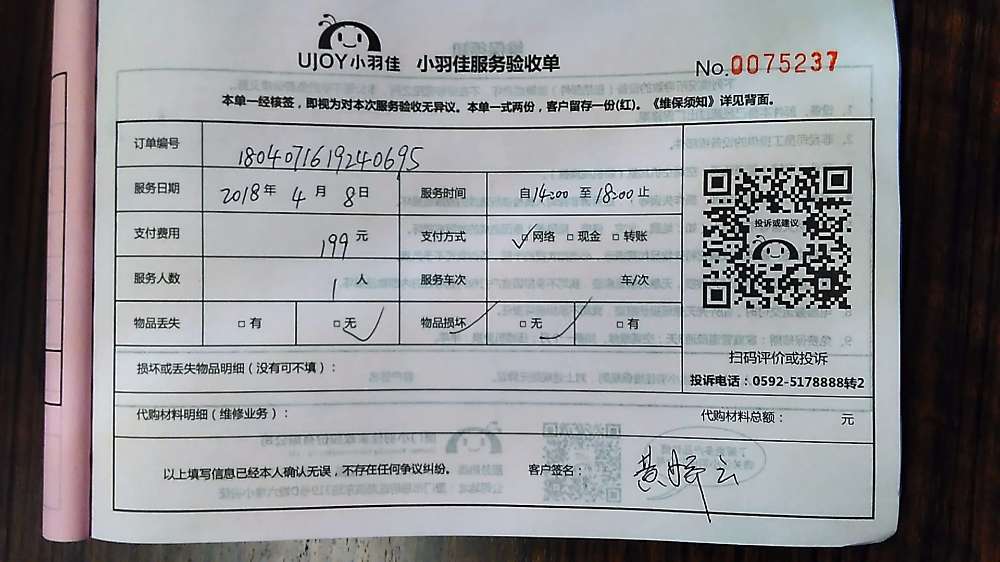 UJOY小羽佳 小羽佳服务验收单 No.0075237
本单一经核签，即视为对本次服务验收无异议。本单一式两份，客户留存一份(红)。《维保须知》详见背面。
订单编号 1804071619240695
服务日期 2018年 4月 8日 服务时间 自14:00 至 18:00 止
支付费用 199 元 支付方式 ☑网络 □现金 □转账
服务人数 1 人 服务车次 车/次
物品丢失 □有 □无✓ 物品损坏 □无✓ □有
投诉或建议
扫码评价或投诉
投诉电话：0592-5178888转2
损坏或丢失物品明细（没有可不填）：
代购材料明细（维修业务）： 代购材料总额： 元
以上填写信息已经本人确认无误，不存在任何争议纠纷。 客户签名： 黄 云